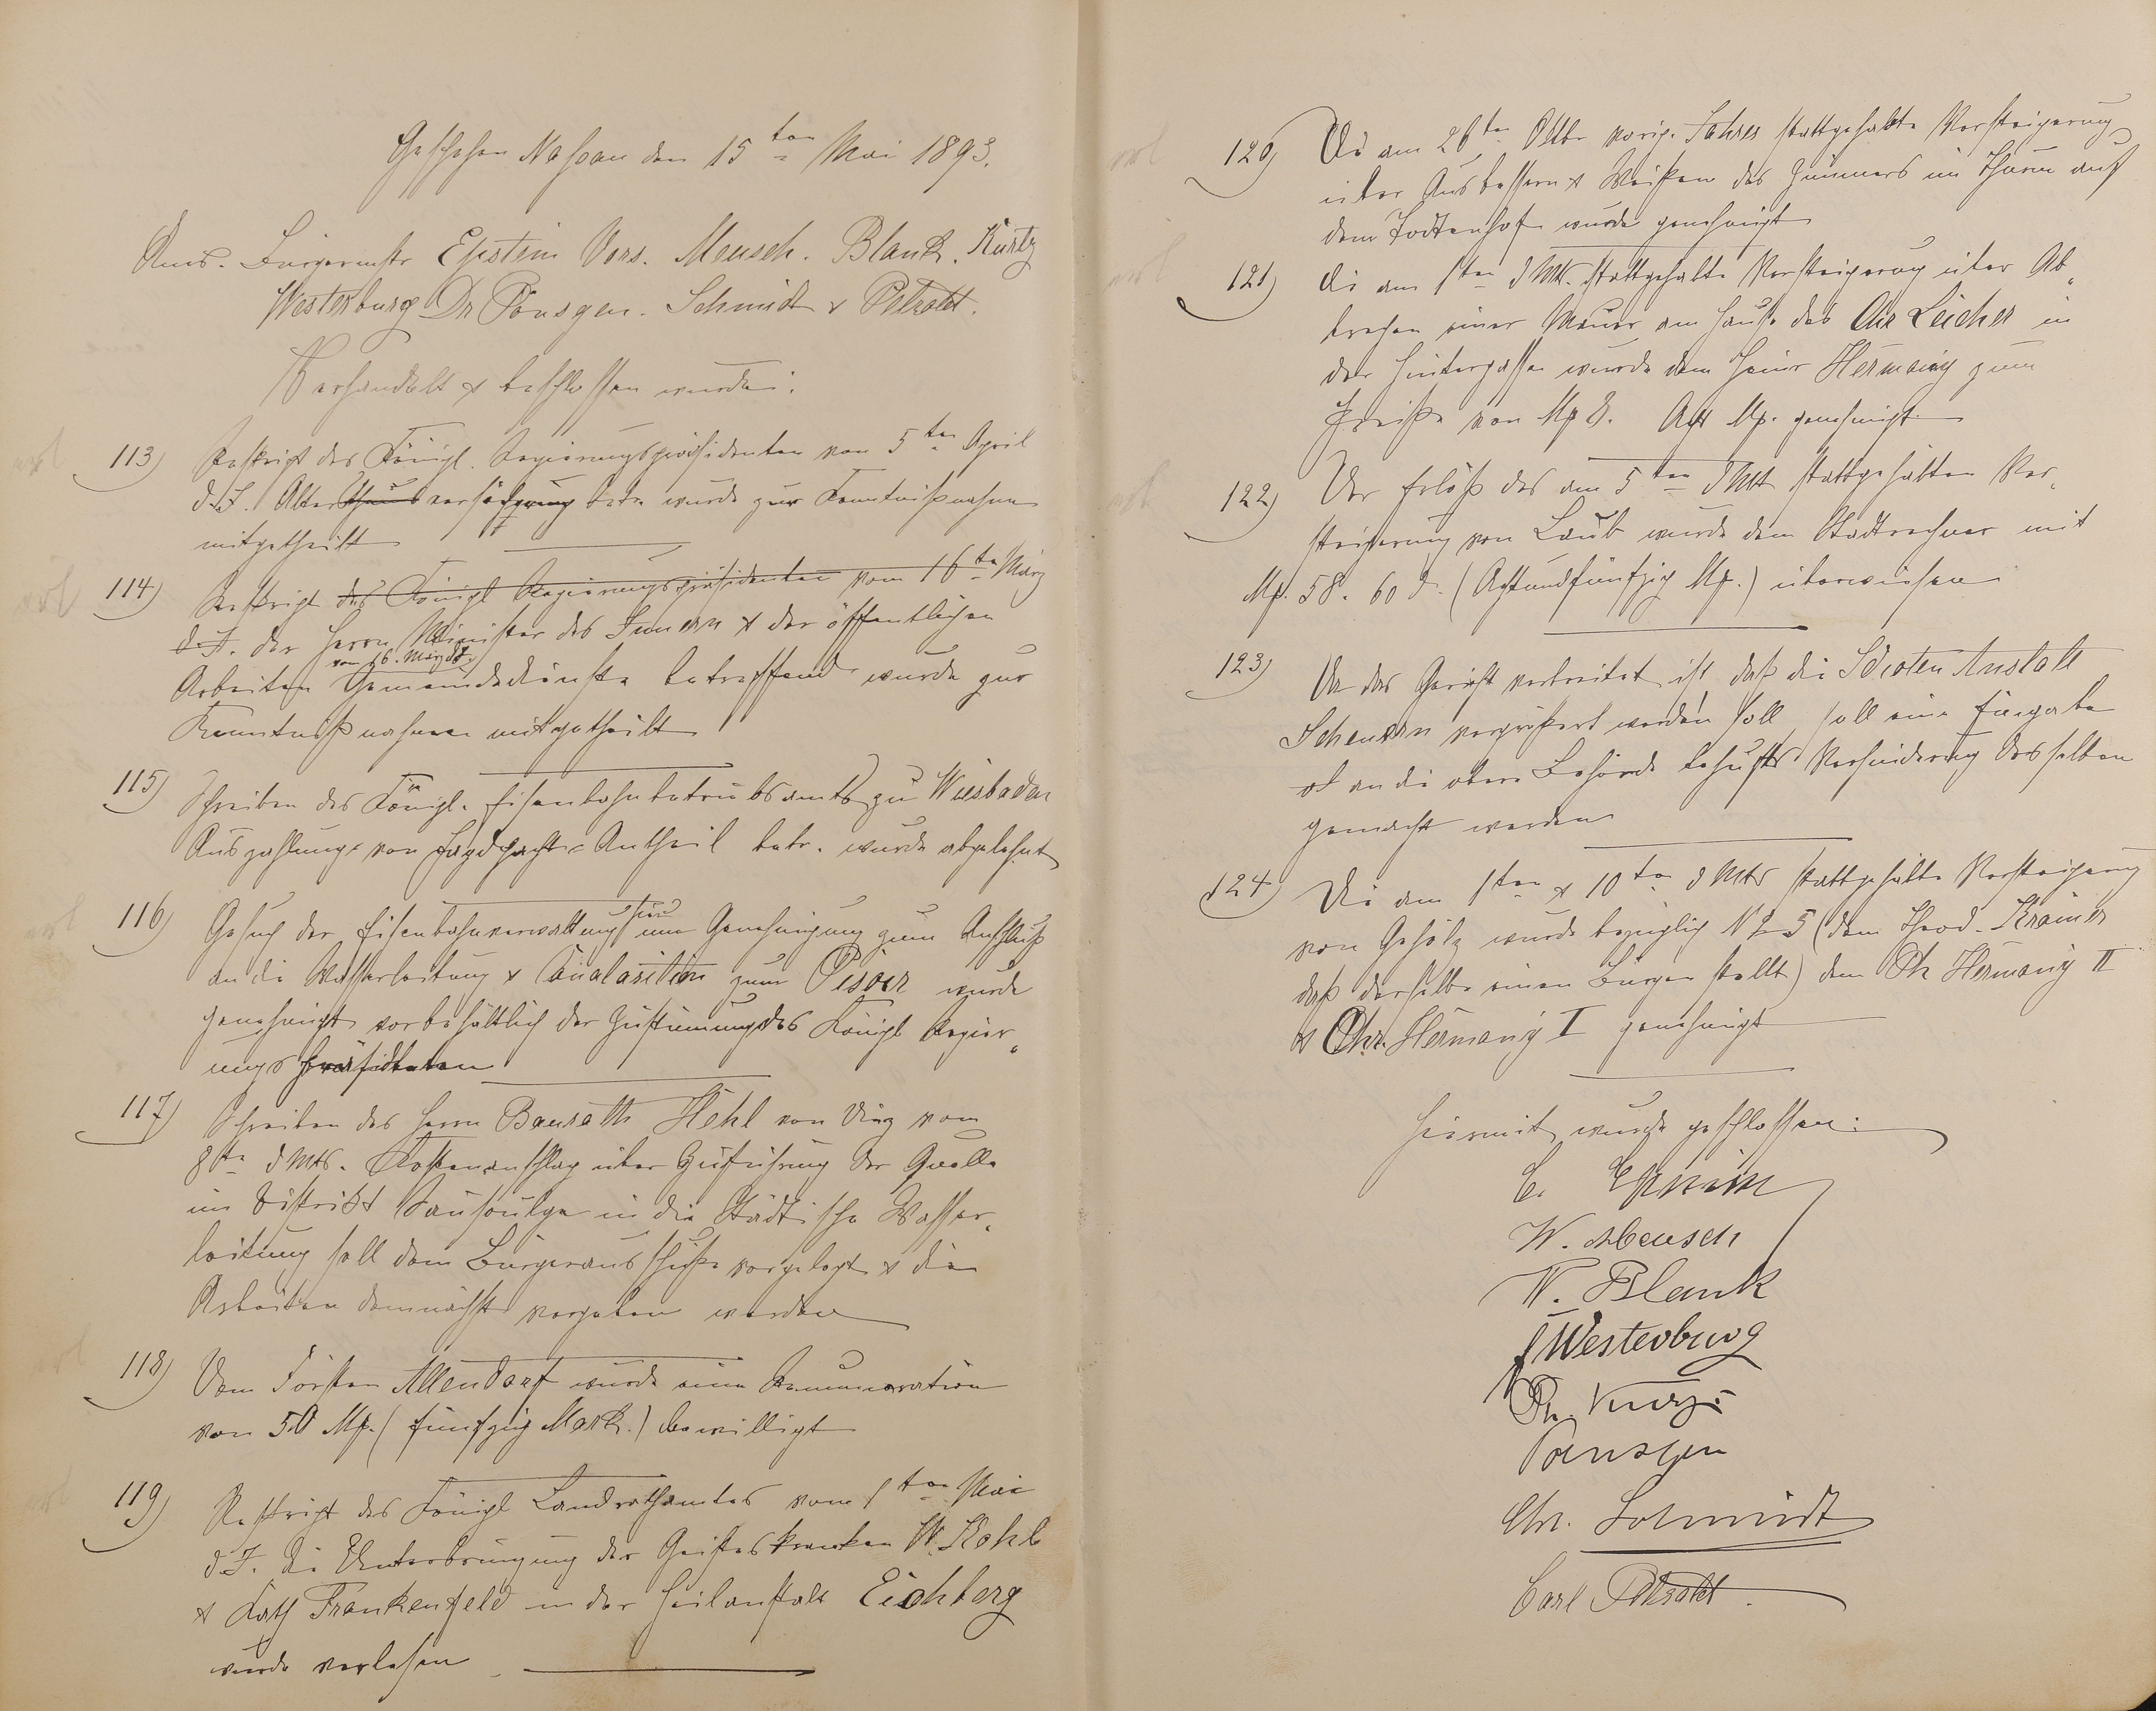 Geschehen Nassau den 15ten Mai 1893.
Anw. Bürgermstr Epstein Vors. Meusch. Blank. Kurtz
Westerburg Dr Pönsgen. Schmidt & Petzoldt.
Verhandelt & beschlossen wurde:
113) Reskript des Königl. Regierungspräsidenten vom 5ten April
d.J. Altersversorgung betr. wurde zur Kenntnißnahme
mitgetheilt
114) Reskript des Königl Regierungspräsidenten vom 16ten März
d.J. der Herrn Minister des Innern & der öffentlichen
vom 16. März d.J.
Arbeiten Gemeindedienste betreffend wurde zur
Kenntnißnahme mitgetheilt
115) Schreiben des Königl. Eisenbahnbetriebsamts zu Wiesbaden
Auszahlung von Jagdpacht-Antheil betr. wurde abgelehnt
116) Gesuch der Eisenbahnverwaltung um Genehmigung zum Anschluß
an die Wasserleitung & Canalasition zum Pisoir wurde
genehmigt vorbehältlich der Zustimmung des Königl Regier„
ungspräsidenten
117) Schreiben des Herrn Baurath Hehl von Diez vom
8ten d Mts. Kostenanschlag über Zuführung der Quelle
im Distrikt in die Städtische Wasser„
leitung soll dem Bürgerausschuße vorgelegt & die
Arbeiten demnächst vergeben werden
118) Dem Förster Allendorf wurde eine Remuneration
von 50 Mk. (fünfzig Mark.) bewilligt
119) Reskript des Königl Landrathsamtes vom 1ten Mai
d.J. die Unterbringung der Geisteskranken W. Kohl
& Kath Frankenfeld in der Heilanstalt Eichberg
wurde verlesen
120) Die am 26ten Oktbr vorig. Jahres stattgehabte Versteigerung
über Ausbessern & Weißen des Zimmers im Thurm auf
dem Todtenhof wurde genehmigt
121) Die am 1ten d Mts. stattgehabte Versteigerung über Ab„
brechen einer Mauer am Hause des Chr Leicher in
der Hintergasse wurde dem Heinr Hermany zum
Preiße von Mk 8. Acht Mk. genehmigt
122) Der Erlöß des am 5ten d Mts stattgehabten Ver„
steigerung von Laub wurde dem Stadtrechner mit
Mk. 58. 60 d. (Achtundfünfzig Mk.) überwiesen
123) Da das Gerücht verbreitet ist, daß die Idioten Anstalt
Scheuern vergrößert werden soll, soll eine Eingabe
an die obere Behörde behufts Verhinderung desselben
gemacht werden
124) Die am 1ten & 10ten d Mts stattgehabte Versteigerung
von Gehölz wurde bezüglich N 2-5 (dem Theod. Krämer
daß derselbe einen Bürgen stellt) dem Ph Hermany II
& Chr. Hermany I genehmigt
Hiermit wurde geschlossen:
C. Epstein
W. Meusch
W. Blank
Westerburg
Ph. Kurz
Pönsgen
Chr. Schmidt
Carl Petzoldt.